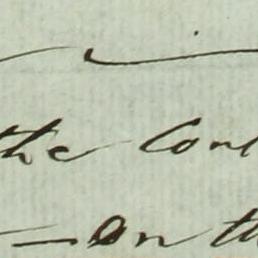 the Con
— on th